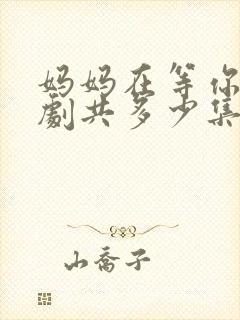 妈妈在等你
劇共多少集
山喬子